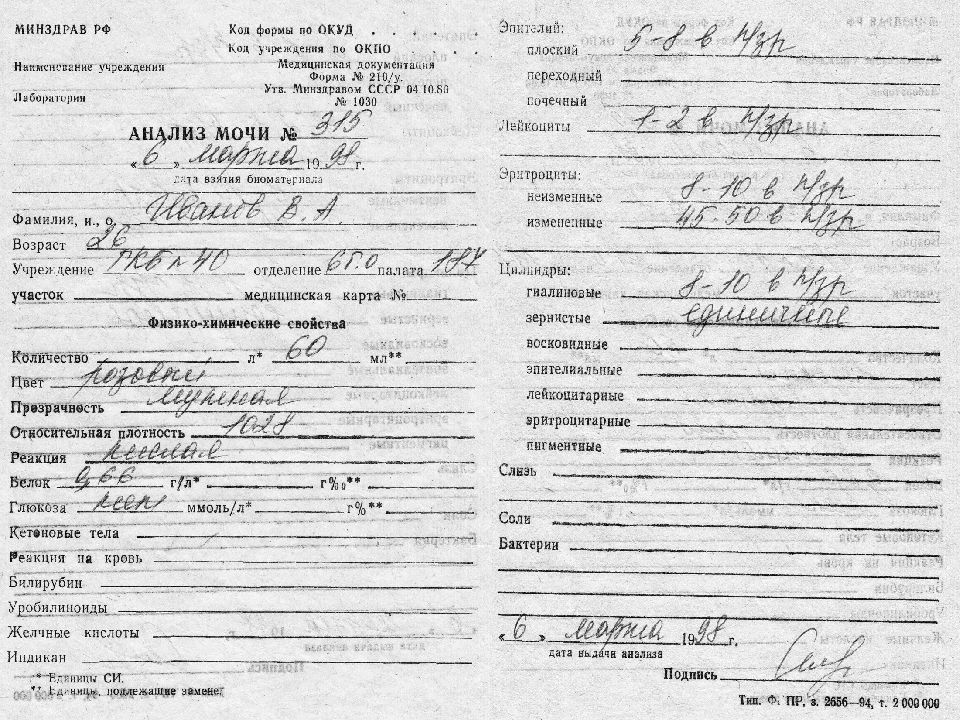 МИНЗДРАВ РФ
Код формы по ОКУД . . . .
Код учреждения по ОКПО . . .
Наименование учреждения
Медицинская документация
Форма № 210/у.
Лаборатория
Утв. Минздравом СССР 04.10.80
№ 1030
АНАЛИЗ МОЧИ № 315
«6» марта 1998 г.
дата взятия биоматериала
Фамилия, и., о. Иванов В. А
Возраст 26
Учреждение ГКБ № 40 отделение палата 187
участок медицинская карта №
Физико-химические свойства
Количество л* 60 мл**
Цвет розовый
Прозрачность мутная
Относительная плотность 1028
Реакция кислая
Белок 0,66 г/л* г%₀**
Глюкоза нет ммоль/л* г%**
Кетоновые тела
Реакция на кровь
Билирубин
Уробилиноиды
Желчные кислоты
Индикан
* Единицы СИ.
** Единицы, подлежащие замене.
Эпителий:
плоский 5-8 в п/зр
переходный
почечный
Лейкоциты 1-2 в п/зр
Эритроциты:
неизменные 8-10 в п/зр
измененные 45-50 в п/зр
Цилиндры:
гиалиновые 8-10 в п/зр
зернистые единичные
восковидные
эпителиальные
лейкоцитарные
эритроцитарные
пигментные
Слизь
Соли
Бактерии
«6» марта 1998 г.
дата выдачи анализа
Подпись
Тип. Ф. ПР, з. 2656—94, т. 2 000 000